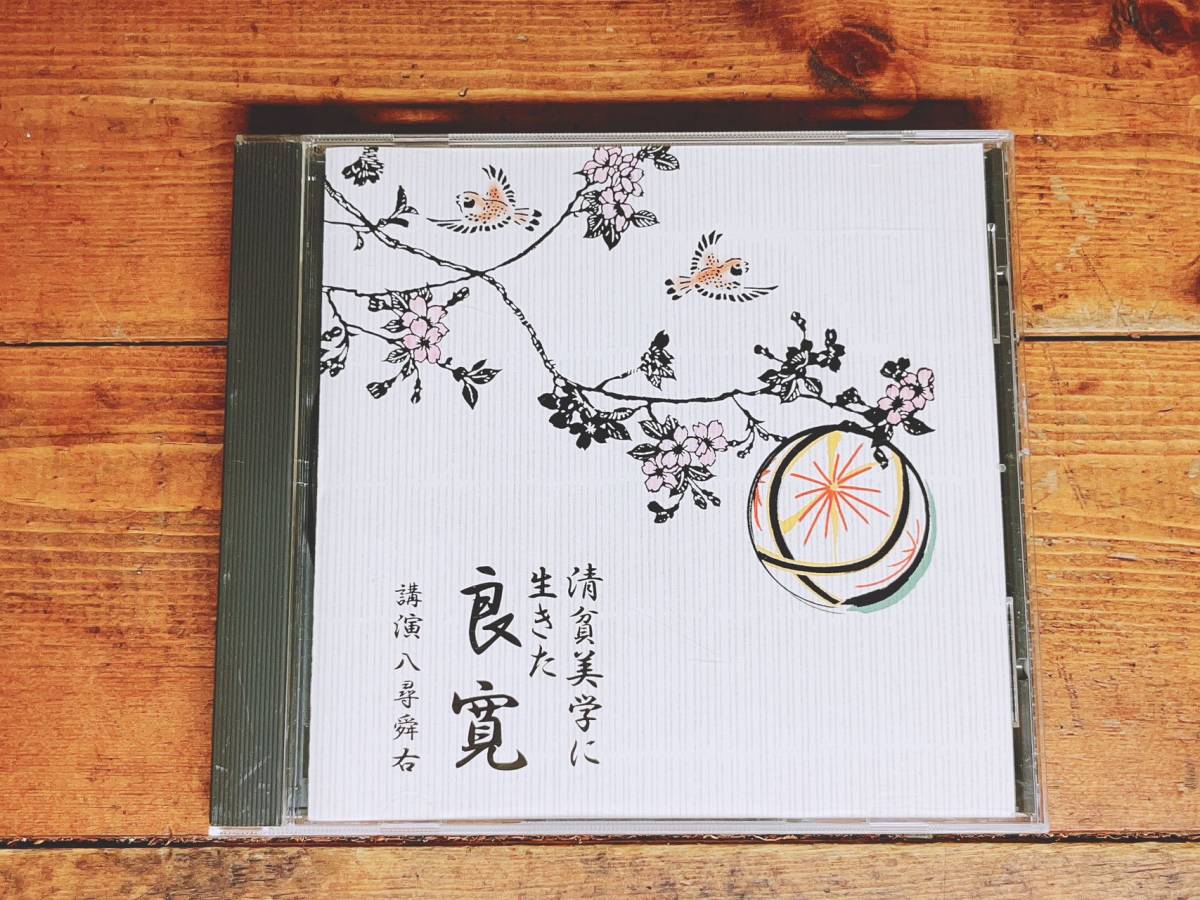 清貧美学に
生きた
良寛
講演 八尋舜右